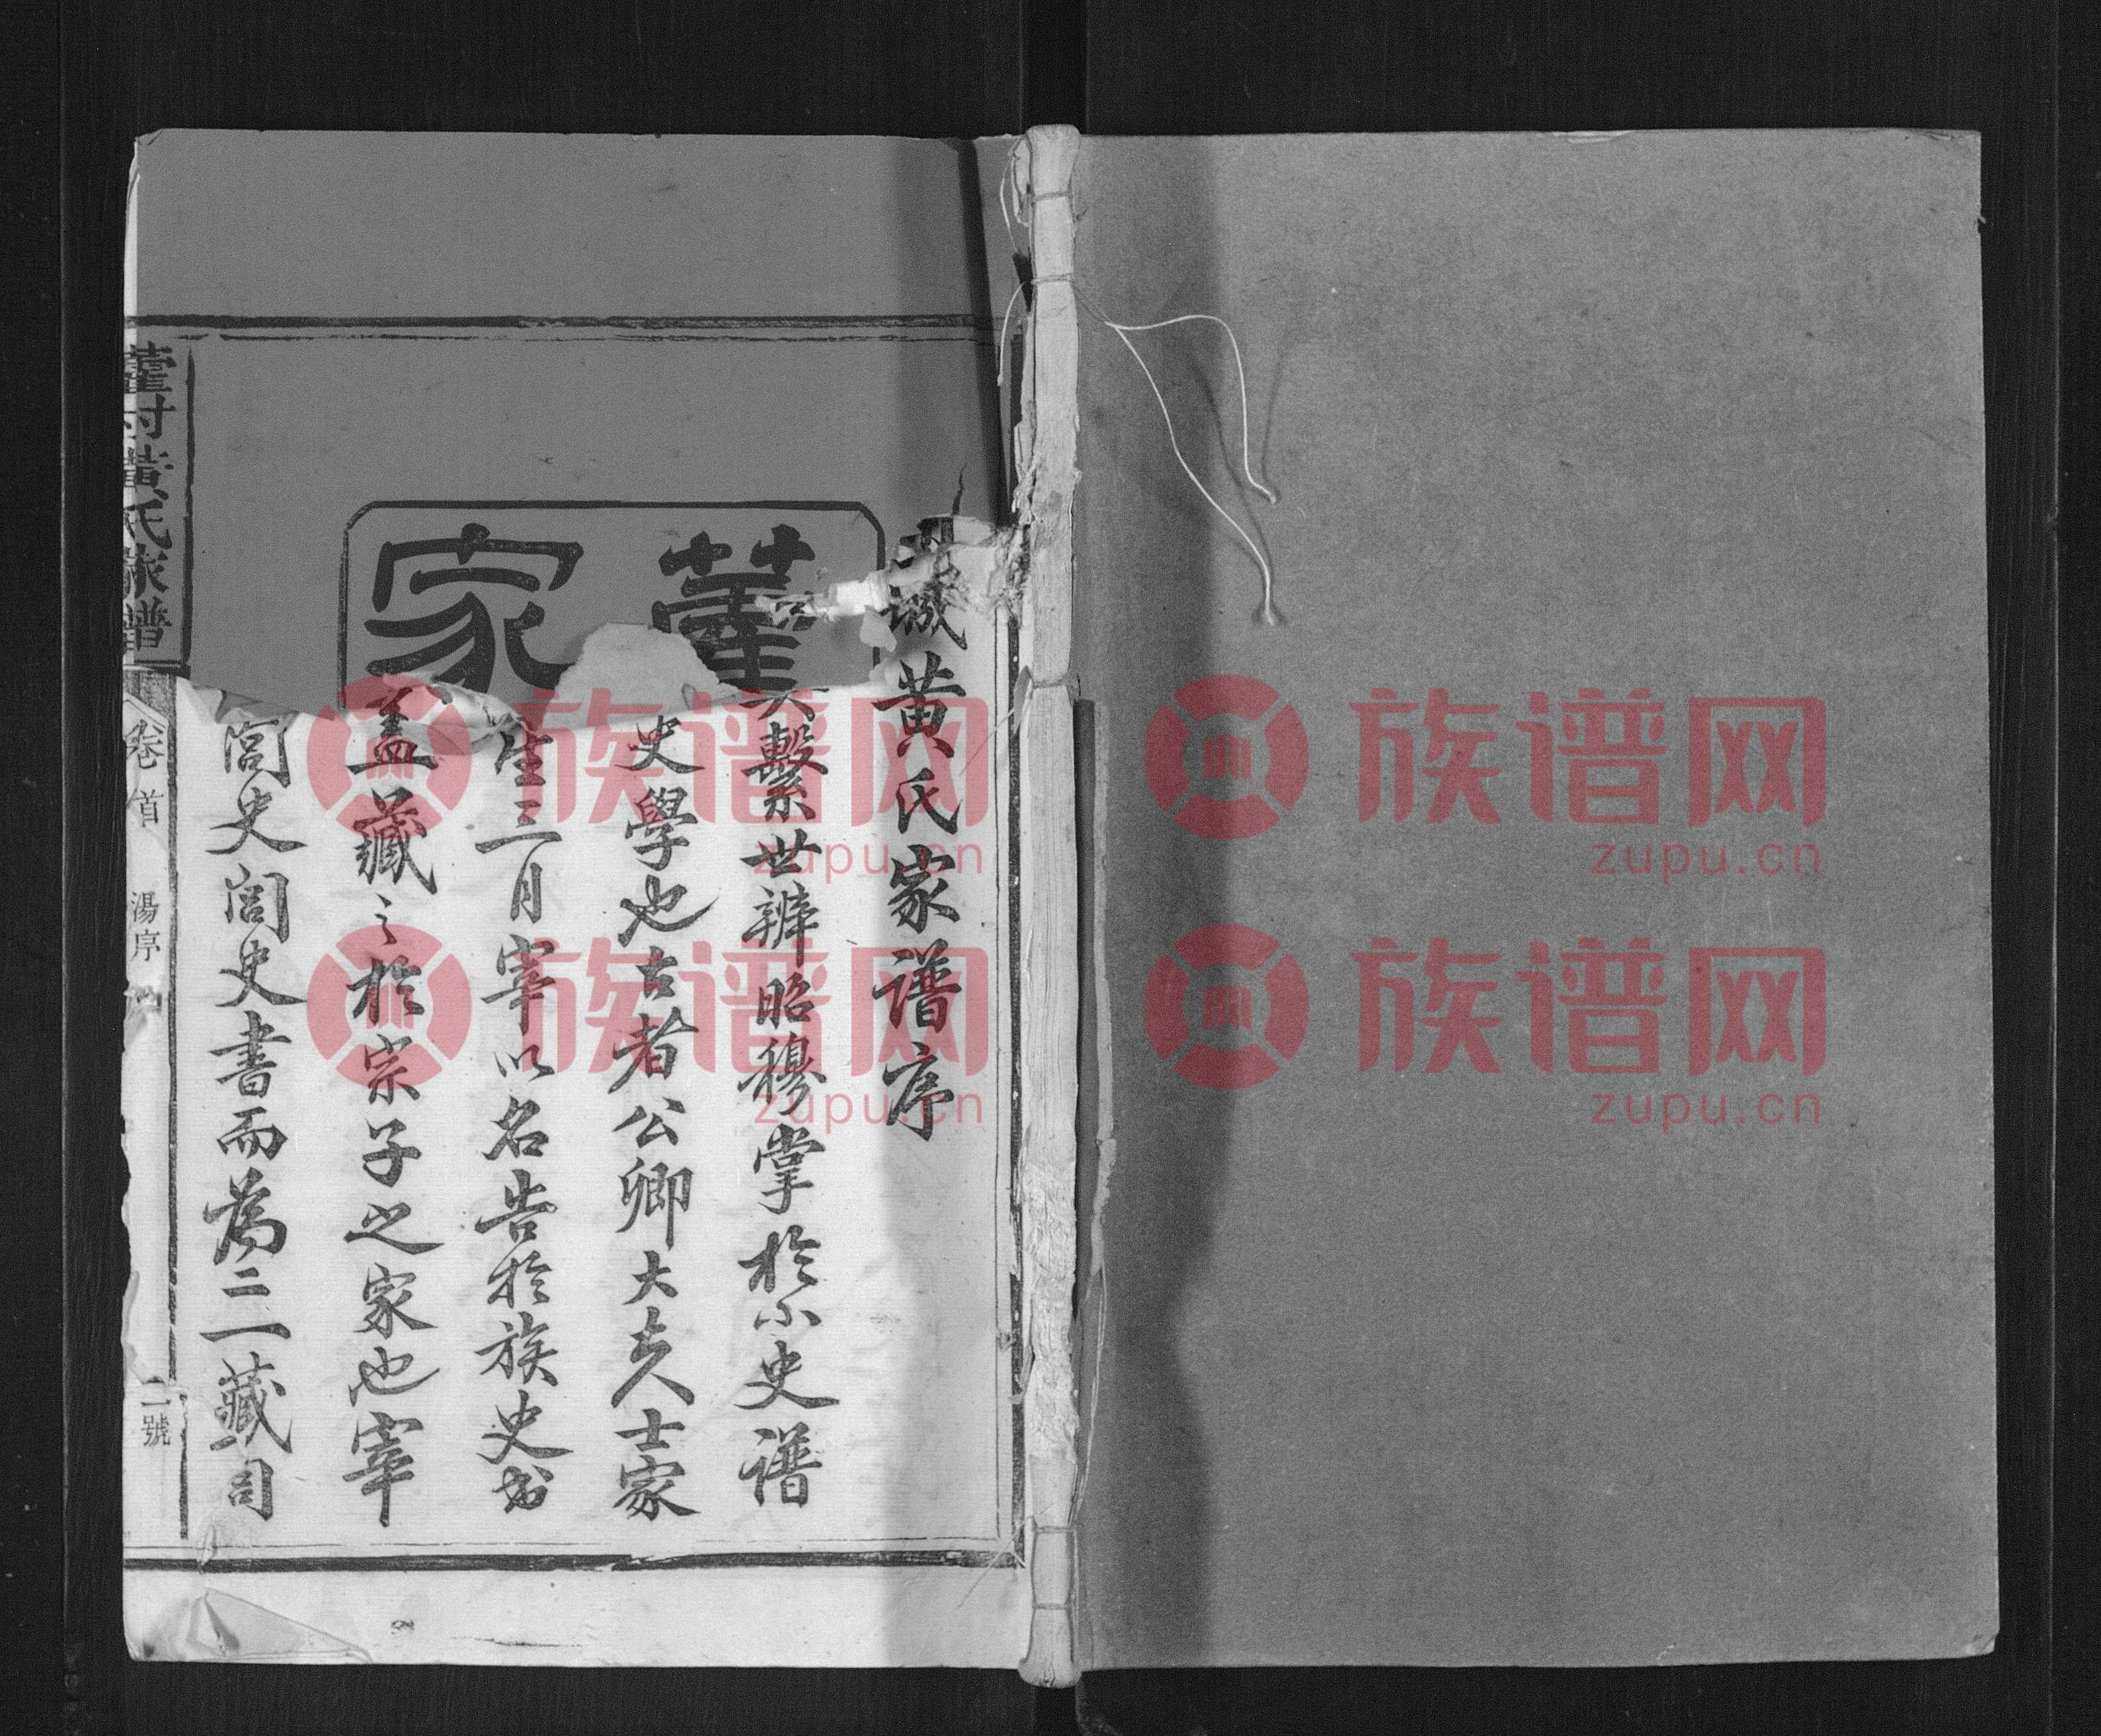 黄氏家譜序
繫世辨昭穆掌於小史譜
史學也古者公卿大夫士家
生三月宰以名告於族史書
蓋藏之於宗子之家也宰
閭史閭史書而為二一藏司
家
村黃氏族譜
卷首
湯序
二號
族谱网
zupu.cn
族谱网
zupu.cn
族谱网
zupu.cn
族谱网
zupu.cn